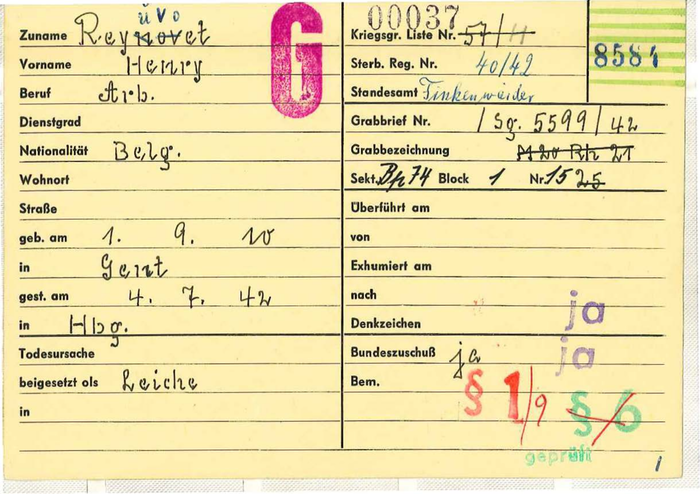 üvo
Zuname Reynovet
Vorname Henry
Beruf Arb.
Dienstgrad
Nationalität Belg.
Wohnort
Straße
geb. am 1. 9. 10
in Gent
gest. am 4. 7. 42
in Hbg.
Todesursache
beigesetzt als Leiche
in
G
00037
Kriegsgr. Liste Nr. 57/11
Sterb. Reg. Nr. 40/42
Standesamt Finkenwärder
8581
Grabbrief Nr. /Sg. 5599/42
Grabbezeichnung
Sekt. Bp74 Block 1 Nr. 15 25
Überführt am
von
Exhumiert am
nach
ja
Denkzeichen
ja
Bundeszuschuß ja
Bem.
§ 1/9 § 6
geprüft
1